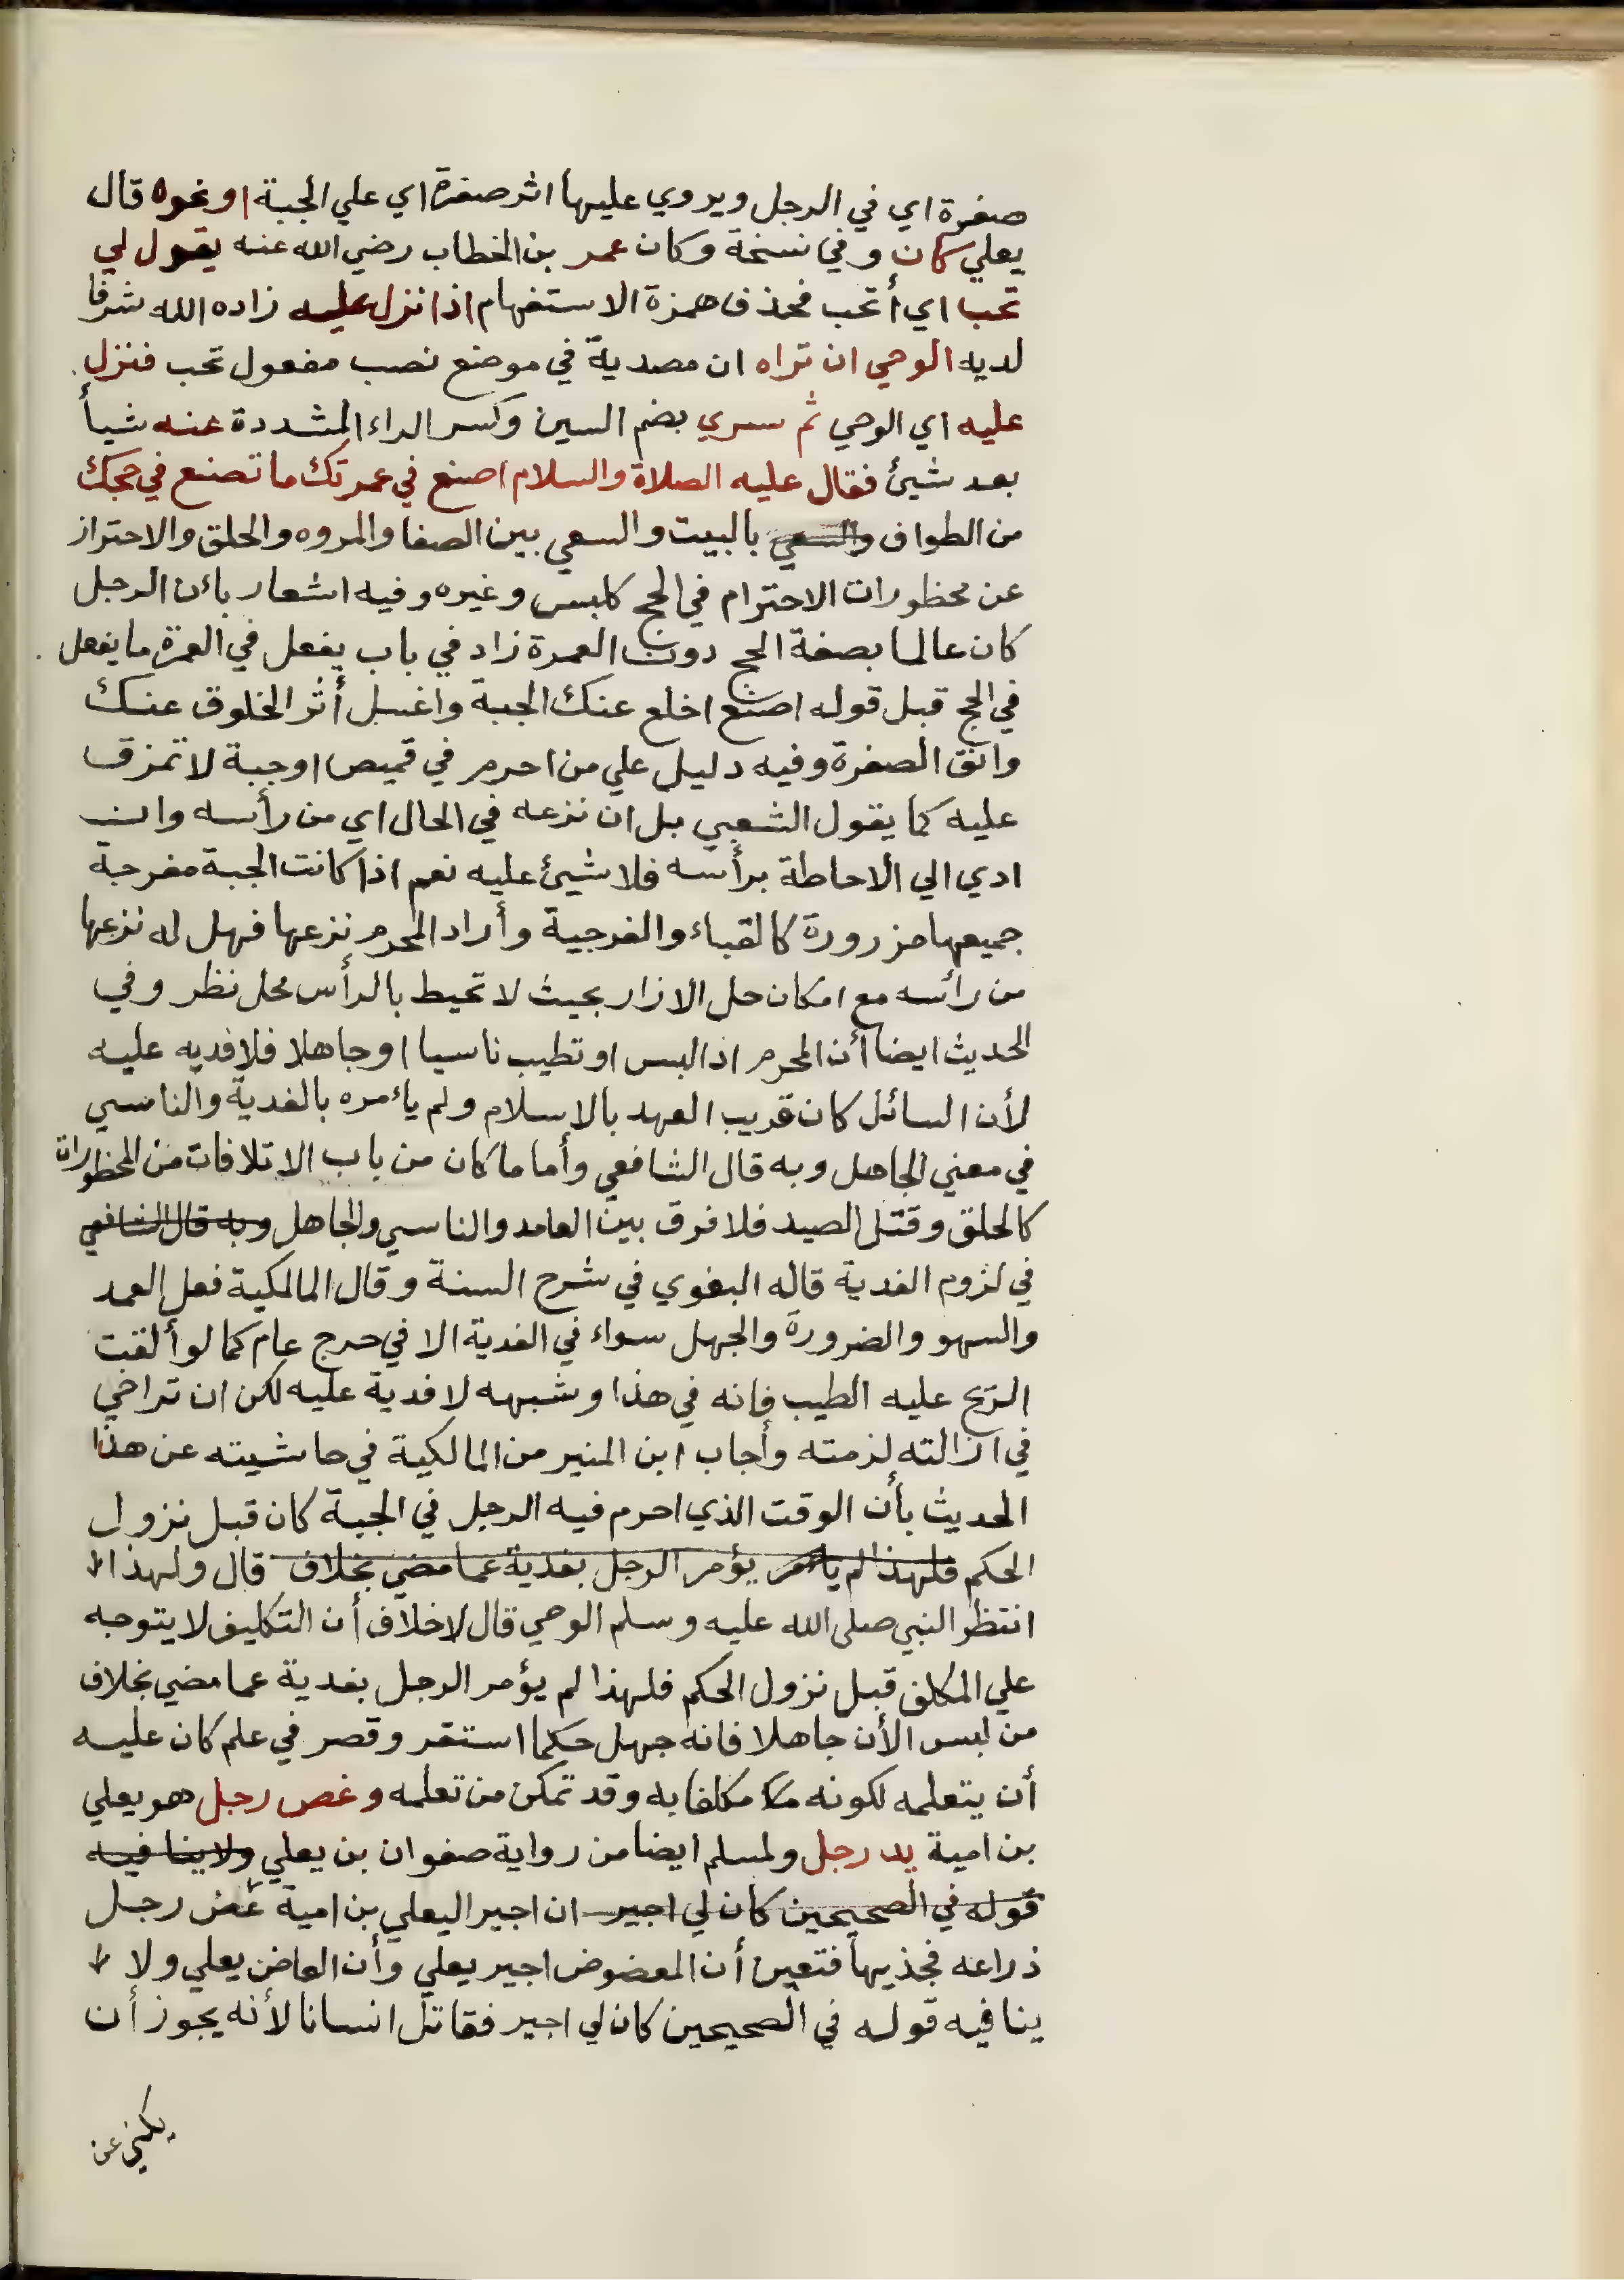 صفرة اي في الرجل ويروي عليها اثر صفرة اي علي الجبة اونحوه قال
يعلي كان وفي نسخة وكان عمر بن الخطاب رضي الله عنه يقول لي
تحب اي أتحب فحذف همزة الاستفهام اذا نزل عليه زاده الله شرفا
لديه الوحي ان تراه ان مصدية في موضع نصب مفعول تحب فنزل
عليه اي الوحي ثم سري بضم السين وكسر الراء المشددة عنه شيأ
بعد شيئ فقال عليه الصلاة والسلام اصنع في عمرتك ما تصنع في حجك
من الطواف والسعي بالبيت والسعي بين الصفا والمروه والحلق والاحتراز
عن محظورات الاحترام في الحج كلبس وغيره وفيه اشعار بائن الرجل
كان عالما بصفة الحج دون العمرة زاد في باب يفعل في العمرة ما يفعل
في الحج قبل قوله اصنع اخلع عنك الجبة واغسل أثر الخلوق عنك
وانق الصفرة وفيه دليل علي من احرم في قميص اوجبة لا تمزق
عليه كما يقول الشعبي بل ان نزعه في الحال اي من رأسه وان
ادي الي الاحاطة برأسه فلا شيئ عليه نعم اذا كانت الجبة مفرجة
جميعها مزرورة كالقباء والفرجية وأراد المحرم نزعها فهل له نزعها
من رأسه مع امكان حل الازار بحيث لا تحيط بالرأس محل نظر وفي
الحديث ايضا أن المحرم اذا لبس اوتطيب ناسيا اوجاهلا فلا فديه عليه
لأن السائل كان قريب العهد بالاسلام ولم يائمره بالفدية والناسي
في معني الجاهل وبه قال الشافعي وأما ما كان من باب الاتلافات من المحظورات
كالحلق وقتل الصيد فلا فرق بين العامد والناسي والجاهل وبه قال الشافعي
في لزوم الفدية قاله البغوي في شرح السنة وقال المالمكية فعل العمد
والسهو والضرورة والجهل سواء في الفدية الا في حرج عام كما لو ألقت
الريح عليه الطيب فإنه في هذا وشبهه لا فدية عليه لكن ان تراخي
في ازالته لزمته وأجاب ابن المنير من المالكية في حاشيته عن هذا
الحديث بأن الوقت الذي احرم فيه الرجل في الجبة كان قبل نزول
الحكم فلهذا لم يائمر يؤمر الرجل بفدية عما مضي بخلاف قال ولهذا
انتظر النبي صلى الله عليه وسلم الوحي قال لاخلاف أن التكليف لا يتوجه
علي المكلف قبل نزول الحكم فلهذا لم يؤمر الرجل بفدية عما مضي بخلاف
من لبس الأن جاهلا فانه جهل حكما استقر وقصر في علم كان عليه
أن يتعلمه لكونه مكلفا به وقد تمكن من تعلمه وغص رجل هو يعلي
بن امية يد رجل ولمسلم ايضا من رواية صفوان بن يعلي ولا ينافيه
قوله في الصحيحين كان لي اجير ان اجير اليعلي بن امية عض رجل
ذراعه فجذبها فتعين أن المعضوض اجير يعلي وأن العاض يعلي ولا
ينافيه قوله في الصحيحين كان لي اجير فقاتل انسانا لأنه يجوز أن
يكني عن